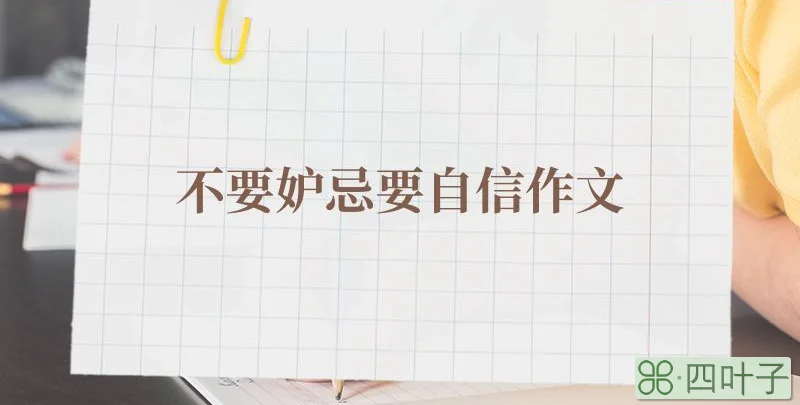 不要妒忌要自信作文
四叶子